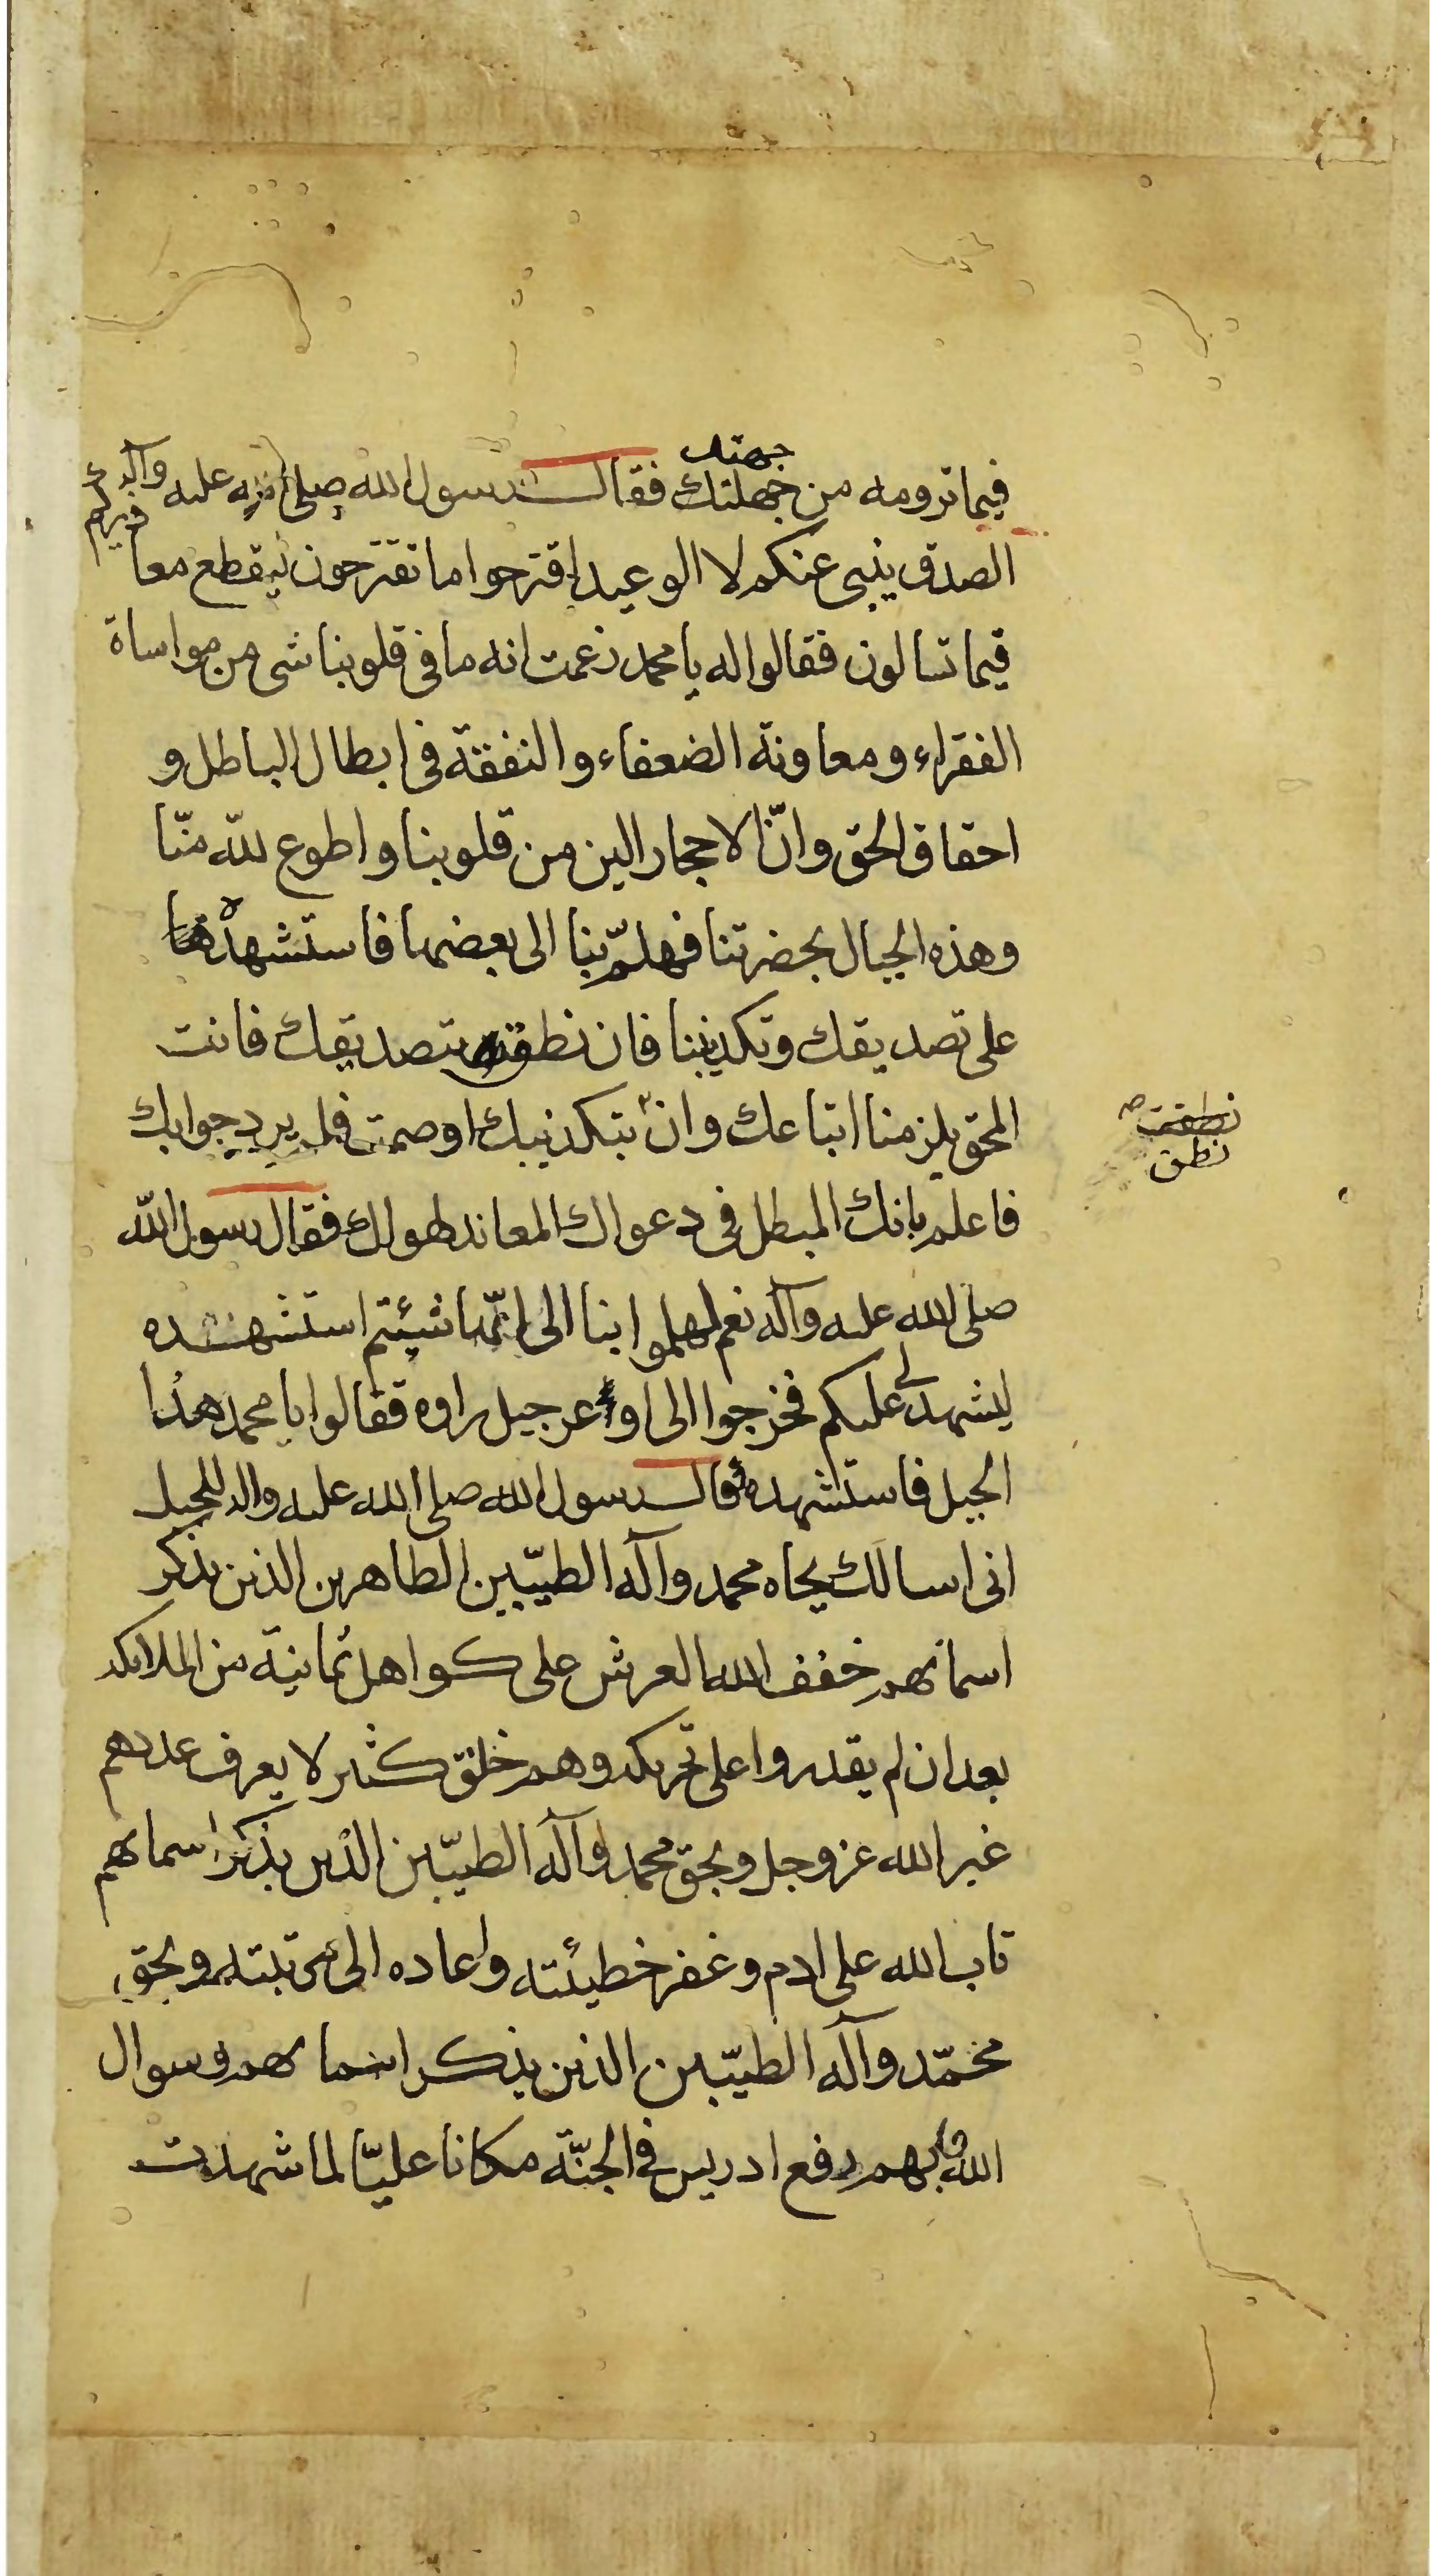 جهتك
فيما ترومه من جهلتك فقال رسول الله صلى الله عليه وآله
الصدق ينبى عنكم لا الوعيد اقترحوا ما تقترحون ليقطع معاذيركم
فيما تسالون فقالوا له يا محمد زعمت انه ما فى قلوبنا شى من مواساة
الفقراء ومعاونة الضعفاء والنفقة فى ابطال الباطل و
احقاق الحق وانّ الاحجار الين من قلوبنا واطوع لله منّا
وهذه الجبال بحضرتنا فهلمّ بنا الى بعضها فاستشهده
على تصديقك وتكذيبنا فان نطق بتصديقك فانت
المحق يلزمنا اتباعك وان بتكذيبك او صمت فلم يرد جوابك
نطقت
نطق
فاعلم بانك المبطل فى دعواك المعاند لهواك فقال رسول الله
صلى الله عليه وآله نعم هلموا بنا الى ايّها شئتم استشهده
ليشهد لى عليكم فخرجوا الى اوعر جبل راوه فقالوا يا محمد هذا
الجبل فاستشهده فقال رسول الله صلى الله عليه واله للجبل
انى اسالك بجاه محمد وآله الطيّبين الطاهرين الذين بذكر
اسمائهم خفف الله العرش على كواهل ثمانية من الملائكه
بعد ان لم يقدروا على تحريكه وهم خلق كثير لا يعرف عددهم
غير الله عز وجل وبحق محمد وآله الطيّبين الذين بذكر اسمائهم
تاب الله على ادم وغفر خطيئته واعاده الى مرتبته وبحق
محمّد وآله الطيّبين الذين بذكر اسمائهم وسوال
الله بهم رفع ادريس فى الجنّة مكانا عليّا لما شهدت